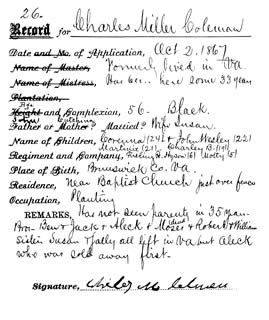 26.
Record for Charles Miller Coleman
Date and No. of Application, Oct 2. 1867
Name of Master, Formerly lived in Va.
Name of Mistress, Has been here some 33 years
Plantation,
Height and Complexion, 56- Black.
Father or Mother? Married? Wife Susan.
Name of Children, (24) & John Wesley (22)
(21) Charles B. (10)
Regiment and Company, (6) (5)
Place of Birth, Brunswick Co. Va.
Residence, Near Baptist Church just over fence
Occupation, Planting
REMARKS, Has not seen parents in 35 years
Bro- Ben & Jack & Aleck & Moses & Robert & William
Sister Susan & Sally all left in Va but Aleck
who was sold away first.
Signature, Charley M Colman